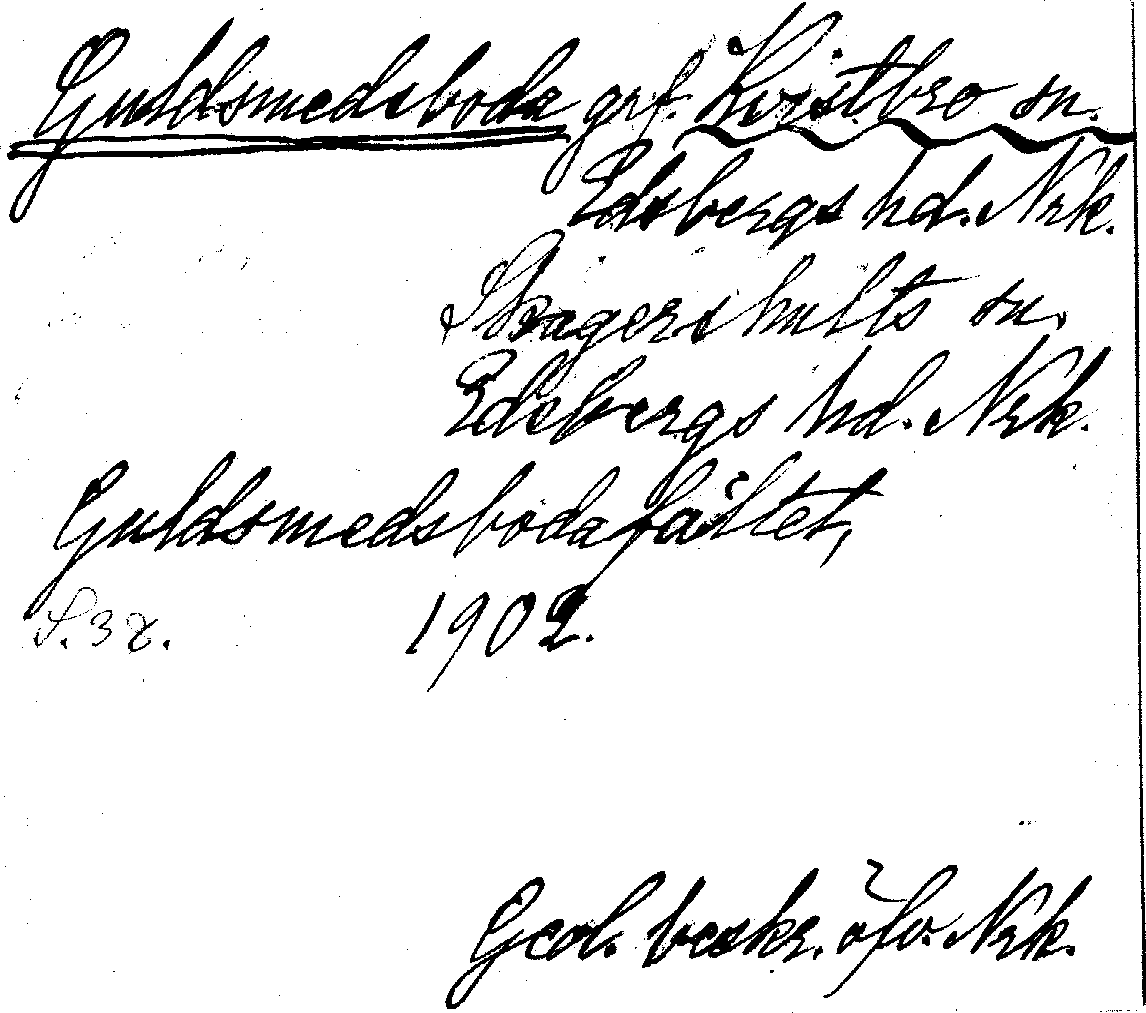 Guldsmedsboda grf. Kvistbro sn.
Edsbergs hd. Nrk.
Skagershults sn.
Edsbergs hd. Nrk.
Guldsmedsbodafältet,
S. 38. 1902.
Geol. beskr. öfv. Nrk.